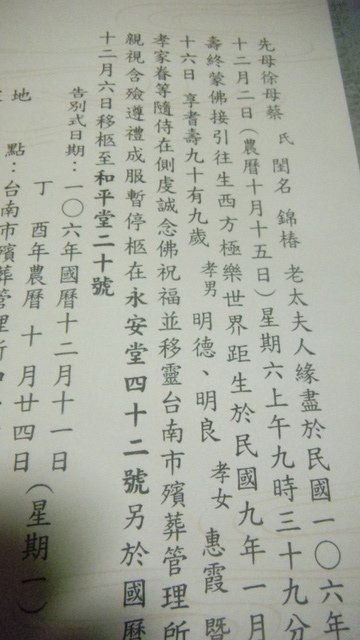 先母徐母蔡 氏 閨名 錦椿 老太夫人緣盡於民國一〇六年
十二月二日(農曆十月十五日)星期六上午九時三十九分
壽終蒙佛接引往生西方極樂世界距生於民國九年一月
十六日 享耆壽九十有九歲 孝男 明德、明良 孝女 惠霞 暨
孝家眷等隨侍在側虔誠念佛祝福並移靈台南市殯葬管理所
親視含殮遵禮成服暫停柩在永安堂四十二號另於國曆
十二月六日移柩至和平堂二十號
告別式日期:一〇六年國曆十二月十一日
丁 酉年農曆 十 月廿四日(星期一)
地 點:台南市殯葬管理所